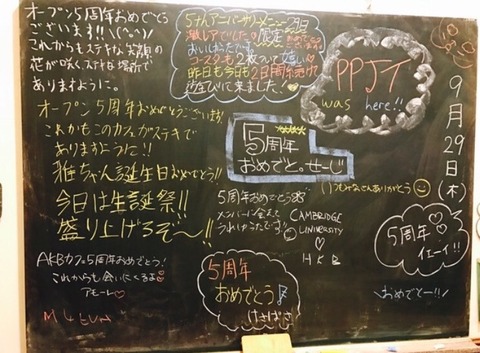 オープン5周年おめでとう
ございます!! \(^o^)/
これからもステキな笑顔の
花が咲く、ステキな場所で
ありますように。
オープン5周年おめでとうございます!
これからもこのカフェがステキで
ありますように!!
雅ちゃん誕生日おめでとう!!
今日は生誕祭!!
盛り上げるぞ〜!!
AKBカフェ5周年おめでとう!
これからも会いにくるよ
アモーレ♡
5thアニバーサリーメニュー
激レアでした♡
おいしかったです
コースターも2枚
昨日も今日も2日間連続
遊びに来ました!
PPJT
was here!!
9月29日(木)
5周年
おめでと。せーじ
いつもみなさんありがとう
5周年おめでとう
メンバーに会えて
うれしかったです
CAMBRIDGE
UNIVERSITY
♡
HKB
5周年
おめでとう
けさぱさ
5周年♡
イェーイ!!
\おめでとー!!/